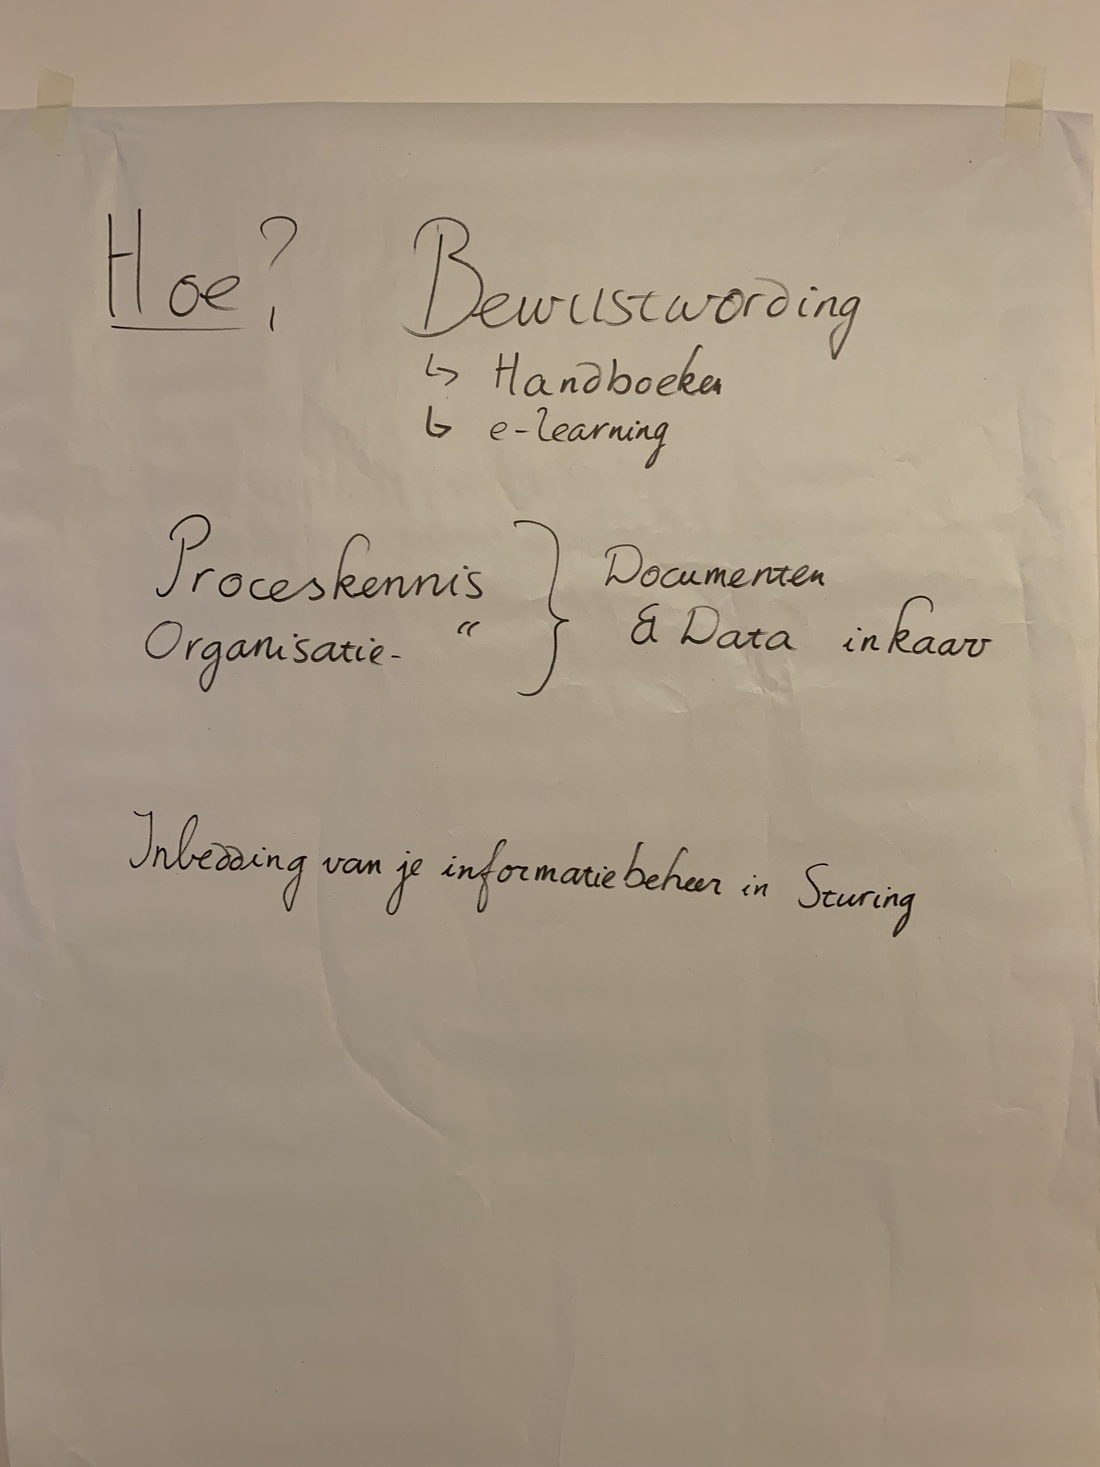 Hoe? Bewustwording
↳ Handboeken
↳ e-learning
Proceskennis } Documenten
Organisatie- “ & Data in kaart
Inbedding van je informatiebeheer in Sturing